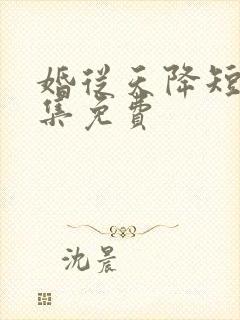 婚從天降短
集免費
沈晨